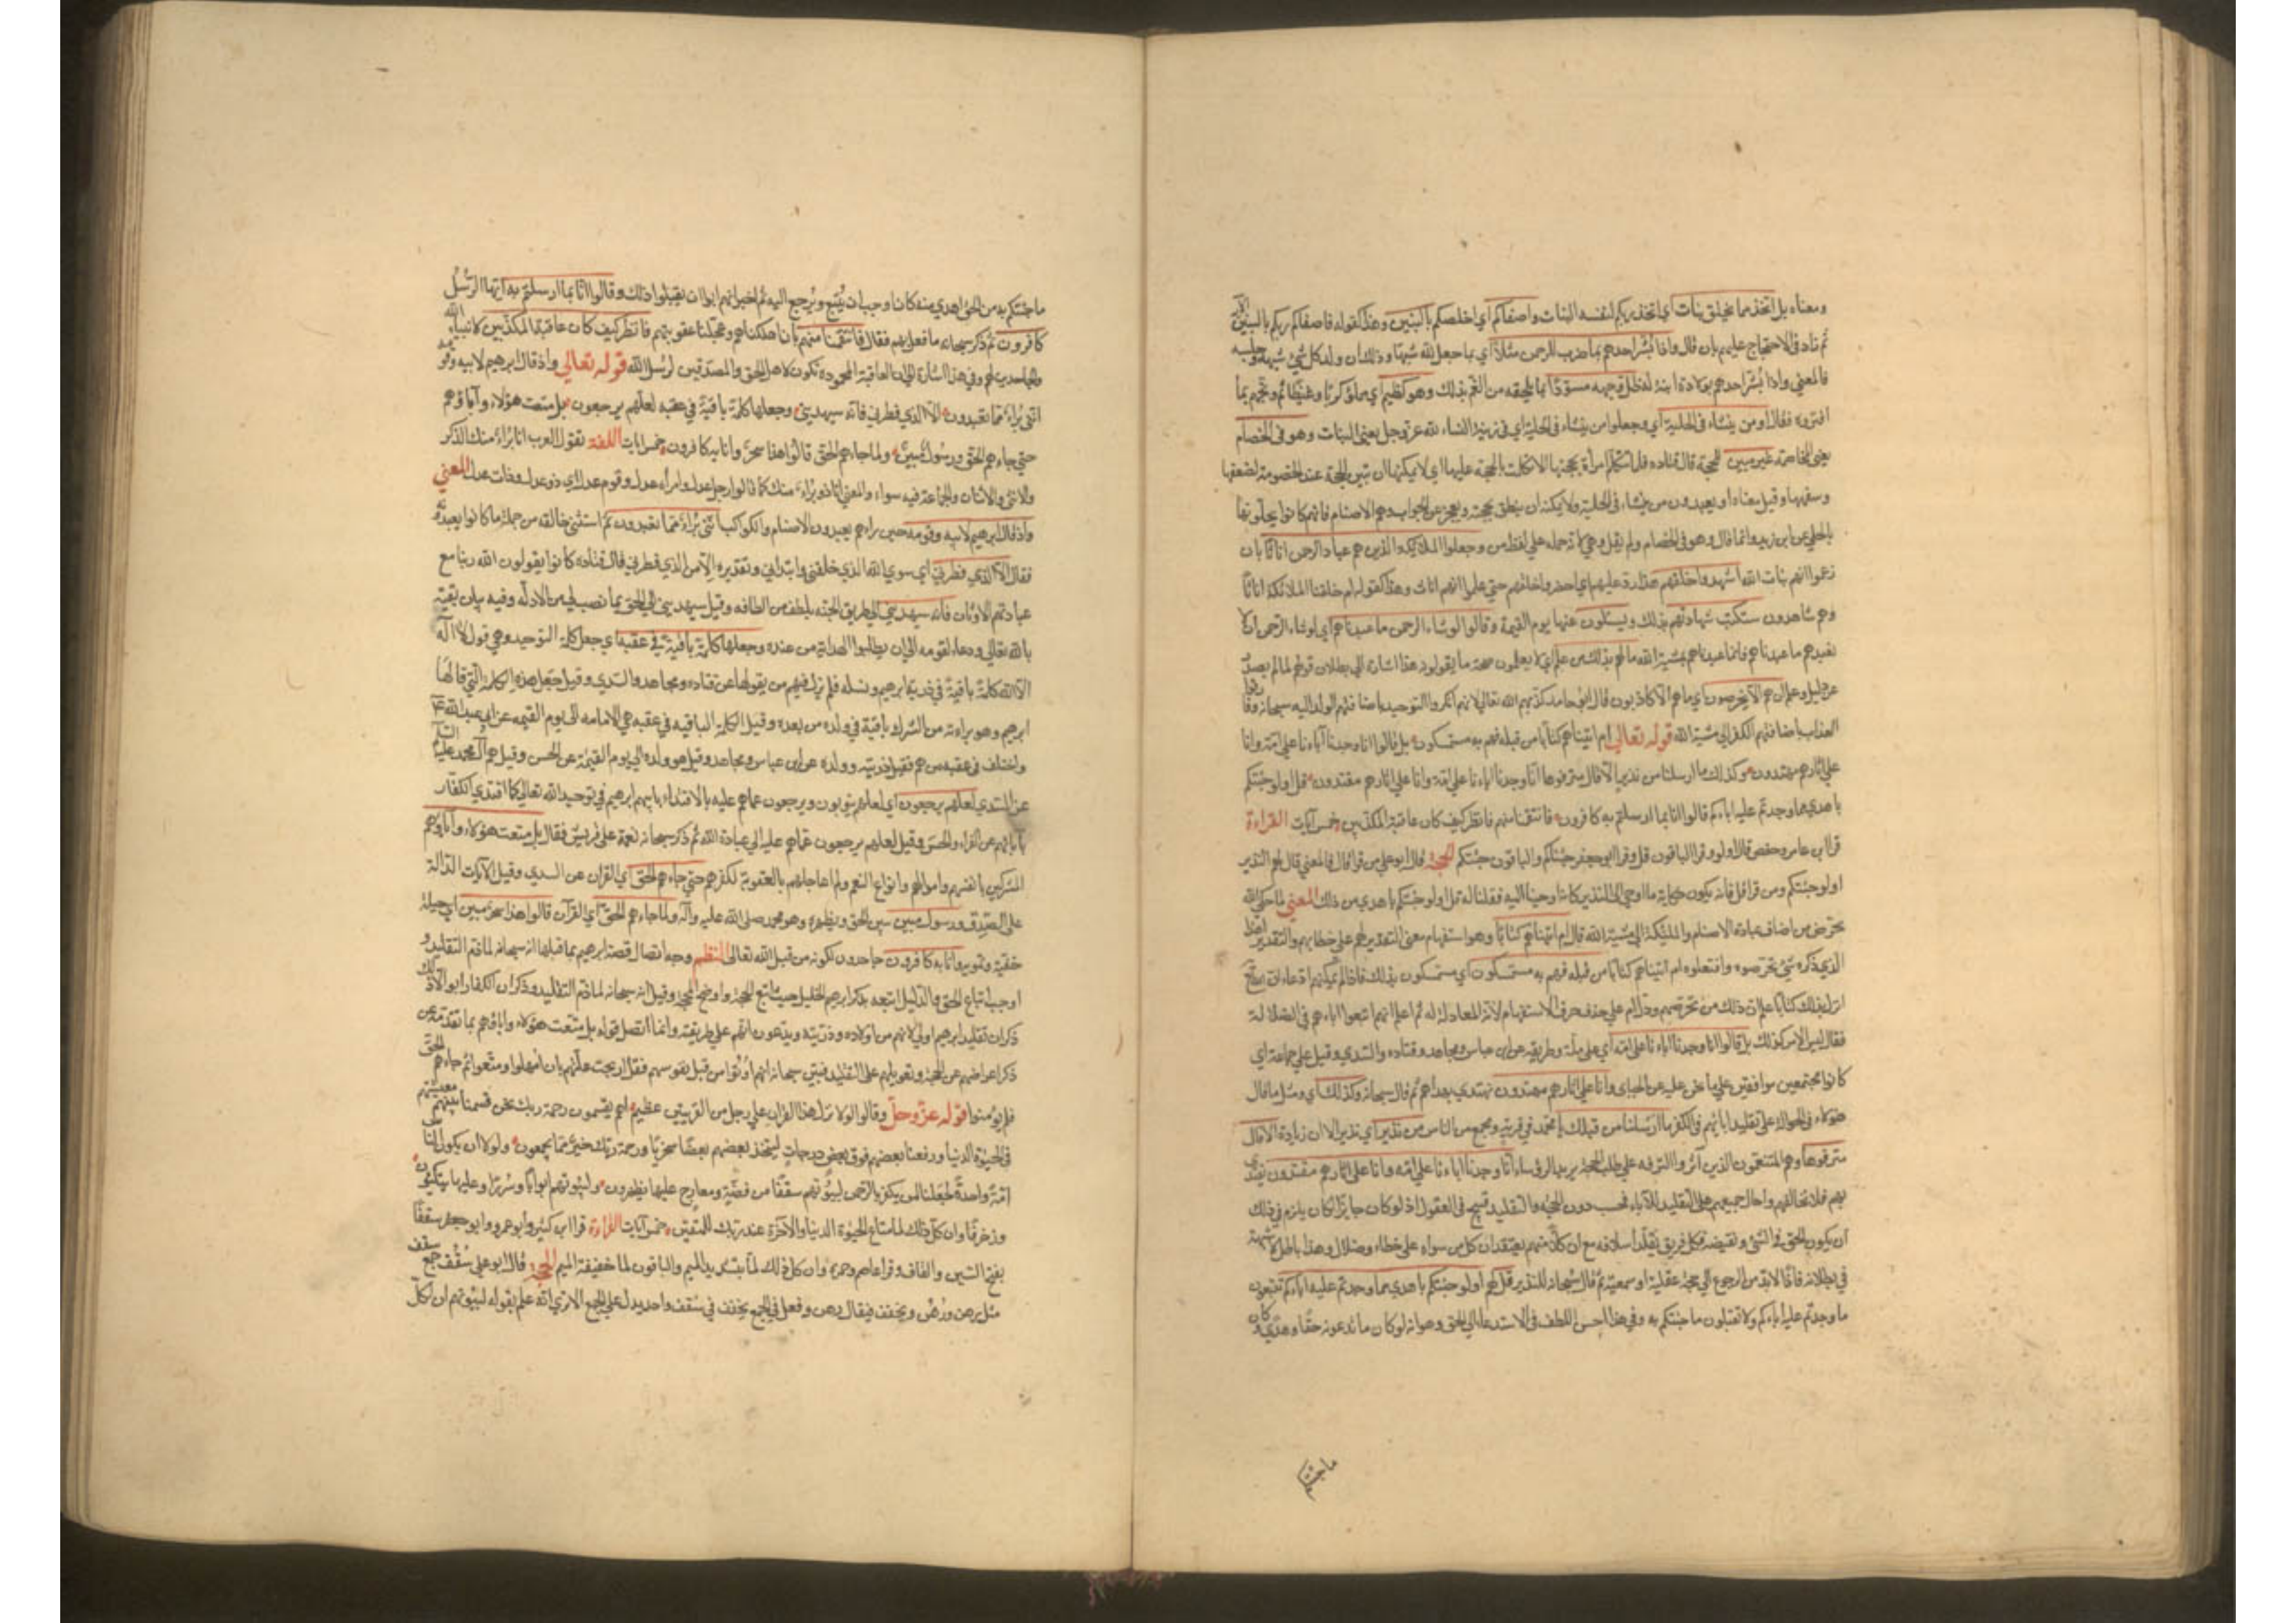 ومعناه بل اتخذ مما يخلق بنات أي اتخذ ربكم لنفسه البنات واصفاكم أي اخلصكم بالبنين وهذا كقوله فاصفاكم ربكم بالبنين الآية
ثم زاد في الاحتجاج عليهم بان قال واذا بشر احدهم بما ضرب للرحمن مثلا أي بما جعل لله شبها وذلك ان ولد كل شيء شبهه وجنسه
فالمعني واذا بشر احدهم بولادة ابنة له ظل وجهه مسودا بما يلحقه من الغم بذلك وهو كظيم أي مملؤ كربا وغيظا ثم وبخهم بما
افتروه فقال اومن ينشاء في الحلية أي وجعلوا من ينشاء في الحلية اي في زينة النساء لله عز وجل يعني البنات وهو في الخصام
يعني المخاصمة غير مبين للحجة قال قتاده قلما تتكلم امرأة بحجتها الا تكلمت بالحجة عليها اي لا يمكنها ان تبين الحجة عند الخصومة لضعفها
وسفهها وقيل معناه او يعبدون من ينشاء في الحلية ولا يمكنه ان ينطق بحجته ويعجز عن الجواب وهم الاصنام فانهم كانوا يحلونها
بالحلي عن ابن زيد وانما قال وهو في الخصام ولم يقل وهي لانه حمله علي لفظ من وجعلوا الملائكة الذين هم عباد الرحمن اناثا بان
زعموا انهم بنات الله اشهدوا خلقهم هذا رد عليهم اي احضروا خلقهم حتي علموا انهم اناث وهذا كقوله ام خلقنا الملائكة اناثا
وهم شاهدون ستكتب شهادتهم بذلك ويسئلون عنها يوم القيمة وقالوا لو شاء الرحمن ما عبدناهم أي لو شاء الرحمن ان لا
نعبدهم ما عبدناهم فانما عبدناهم بمشية الله ما لهم بذلك من علم اي لا يعلمون صحة ما يقولونه هذا اشارة الي بطلان قولهم لما لم يصدر
عن دليل وعلم ان هم الا يخرصون اي ما هم الا كاذبون قال ابو حامد كذبهم الله تعالي لانهم انكروا التوحيد باضافتهم الولد اليه سبحانه وفارقوا
العدل باضافتهم الكفر الي مشية الله قوله تعالي ام اتيناهم كتابا من قبله فهم به مستمسكون بل قالوا انا وجدنا آباءنا علي امة وانا
علي اثارهم مهتدون وكذلك ما ارسلنا من نذير الا قال مترفوها انا وجدنا اباءنا علي امة وانا علي اثارهم مقتدون قل اولو جئتكم
باهدي مما وجدتم عليه اباءكم قالوا انا بما ارسلتم به كافرون فانتقمنا منهم فانظر كيف كان عاقبة المكذبين خمس آيات القراءة
قرا ابن عامر وحفص قال اولو وقرا الباقون قل وقرا ابو جعفر جئناكم والباقون جئتكم الحجة قال ابو علي من قرا قال فالمعني قال لهم النذير
اولو جئتكم ومن قرا قل فانه يكون حكاية ما اوحي الي النذير كانه اوحينا اليه فقلنا له قل اولو جئتكم باهدي من ذلك المعني لما حكي الله
تخرص من اضاف عبادة الاصنام والملئكة الي مشية الله قال ام اتيناهم كتابا وهو استفهام بمعني التقرير لهم علي خطابهم والتقدير اهذا
الذي ذكروه شيء تخرصوه وافتعلوه ام اتيناهم كتابا من قبله فهم به مستمسكون أي مستمسكون بذلك فاذا لم يمكنهم ادعاء ان الله تع
انزل بذلك كتابا علم ان ذلك من تخرصهم ودل ام علي حذف حرف الاستفهام لانه المعادل له ثم اعلم انهم اتبعوا اباءهم في الضلالة
فقال ليس الامر كذلك بل قالوا انا وجدنا اباءنا علي امة أي علي ملة وطريقة عن ابن عباس ومجاهد وقتاده والسدي وقيل علي جماعة اي
كانوا مجتمعين موافقين علي ما نحن عليه عن الجبائي وانا علي اثارهم مهتدون نهتدي بهداهم ثم قال سبحانه وكذلك أي ومثل ما قال
هؤلاء في الحوالة علي تقليد ابائهم في الكفر ما ارسلنا من قبلك يا محمد في قرية ومجمع من الناس من نذير أي نذيرا لان من زيادة الا قال
مترفوها وهم المتنعمون الذين آثروا الترفه علي طلب الحجة يريد الرؤساء انا وجدنا اباءنا علي امة وانا علي اثارهم مقتدون نقتدي
بهم فلا نخالفهم واحال جميعهم علي التقليد للآباء فحسب دون الحجة والتقليد قبيح في العقول اذ لو كان جايزا لكان يلزم في ذلك
أن يكون الحق في الشيء ونقيضه فكل فريق يقلد اسلافه مع ان كلا منهم يعتقد ان كل من سواه علي خطاء وضلال وهذا باطل لا شبهة
في بطلانه فاذا لا بد من الرجوع الي حجة عقلية او سمعية ثم قال سبحانه للنذير قل لهم اولو جئتكم باهدي مما وجدتم عليه اباءكم تتبعون
ما وجدتم عليه اباءكم ولا تقبلون ما جئتكم به وفي هذا احسن اللطف في الاستدعاء الي الحق وهو انه لو كان ما تدعونه حقا وهدي وكان
ما جئتكم
ما جئتكم به من الحق اهدي منه كان اوجب ان يتبع ويرجع اليه ثم اخبر انهم ابوا ان يقبلوا ذلك وقالوا انا بما ارسلتم به ايها الرسل
كافرون ثم ذكر سبحانه ما فعل بهم فقال فانتقمنا منهم بان اهلكناهم وعجلنا عقوبتهم فانظر كيف كان عاقبة المكذبين لانبياء الله
والجاحدين لهم وفي هذا اشارة الي ان العاقبة المحمودة تكون لاهل الحق والمصدقين لرسل الله قوله تعالي واذ قال ابرهيم لابيه وقومه
انني براء مما تعبدون الا الذي فطرني فانه سيهدين وجعلها كلمة باقية في عقبه لعلهم يرجعون بل متعت هؤلاء وآباؤهم
حتي جاءهم الحق ورسول مبين ولما جاءهم الحق قالوا هذا سحر وانا به كافرون خمس ايات اللغة تقول العرب انا براء منك الذكر
والانثي والاثنان والجماعة فيه سواء والمعني انا ذو براء منك كما قالوا رجل عدل وامرأة عدل وقوم عدل اي ذو عدل وذات عدل المعني
واذ قال ابرهيم لابيه وقومه حين رآهم يعبدون الاصنام والكواكب انني براء مما تعبدون ثم استثني خالقه من جملة ما كانوا يعبدونه
فقال الا الذي فطرني أي سوي الله الذي خلقني وابتداني وتقديره الا من الذي فطرني قال قتاده كانوا يقولون الله ربنا مع
عبادتهم الاوثان فانه سيهديني الي طريق الجنة بلطف من الطافه وقيل سيهديني الي الحق بما نصب لي من الادلة وفيه بيان ثقته
بالله تعالي ودعاء لقومه الي ان يطلبوا الهداية من عنده وجعلها كلمة باقية في عقبه اي جعل كلمة التوحيد وهي قول لا اله
الا الله كلمة باقية في ذرية ابرهيم ونسله فلم يزل فيهم من يقولها عن قتاده ومجاهد والسدي وقيل جعل هذه الكلمة التي قالها
ابرهيم وهو براءته من الشرك باقية في ولده من بعده وقيل الكلمة الباقيه في عقبه هي الامامه الي يوم القيمه عن ابي عبد الله ع
واختلف في عقبه من هم فقيل ذريته وولده عن ابن عباس ومجاهد وقيل هو ولده الي يوم القيمة عن الحسن وقيل هم آل محمد عليه السلم
عن السدي لعلهم يرجعون أي لعلهم يتوبون ويرجعون عما هم عليه بالاقتداء بابيهم ابرهيم في توحيد الله تعالي كما اقتدي الكفار
بآبائهم عن الفراء والحسن وقيل لعلهم يرجعون عما هم عليه الي عبادة الله ثم ذكر سبحانه نعمه علي قريش فقال بل متعت هؤلاء وآباؤهم
المشركين بانفسهم واموالهم وانواع النعم ولم اعاجلهم بالعقوبة لكفرهم حتي جاءهم الحق أي القرآن عن السدي وقيل الآيات الدالة
علي الصدق ورسول مبين يبين الحق ويظهره وهو محمد صلي الله عليه وآله ولما جاءهم الحق أي القرآن قالوا هذا سحر مبين اي حيلة
خفية وتمويه وانا به كافرون جاحدون لكونه من قبل الله تعالي النظم وجه اتصال قصة ابرهيم بما قبلها انه سبحانه لما ذم التقليد و
اوجب اتباع الحق والدليل اتبعه بذكر ابرهيم الخليل حيث اتبع الحجة واوضح المحجة وقيل انه سبحانه لما ذم التقليد وذكر ان الكفار ابوا الا ذلك
ذكر ان تقليد ابرهيم اولي لانهم من اولاده وذريته ويدعون انهم علي طريقته وانما اتصل قوله بل متعت هؤلاء واباؤهم بما تقدمه من
ذكر اعراضهم عن الحجة وتعويلهم علي التقليد فبين سبحانه انهم أوتوا من قبل نفوسهم فقد ازيحت علتهم بان امهلوا ومتعوا ثم جاءهم الحق
فلم يؤمنوا قوله عز وجل وقالوا لولا نزل هذا القران علي رجل من القريتين عظيم اهم يقسمون رحمة ربك نحن قسمنا بينهم معيشتهم
في الحيوة الدنيا ورفعنا بعضهم فوق بعض درجات ليتخذ بعضهم بعضا سخريا ورحمة ربك خير مما يجمعون ولولا ان يكون الناس
امة واحدة لجعلنا لمن يكفر بالرحمن لبيوتهم سقفا من فضة ومعارج عليها يظهرون ولبيوتهم ابوابا وسررا وعليها يتكئون
وزخرفا وان كل ذلك لما متاع الحيوة الدنيا والآخرة عند ربك للمتقين خمس آيات القراءة قرا ابن كثير وابو عمرو وابو جعفر سقفا
بفتح السين والقاف وقرا عاصم وحمزه وان كل ذلك لما بتشديد الميم والباقون لما خفيفة الميم الحجة قال ابو علي سُقُف جمع سقف
مثل رهن ورُهُن ويخفف فيقال رهن وفعل في الجمع يخفف في سُقف واحد يدل علي الجمع الا تري انه علم بقوله لبيوتهم ان لكل